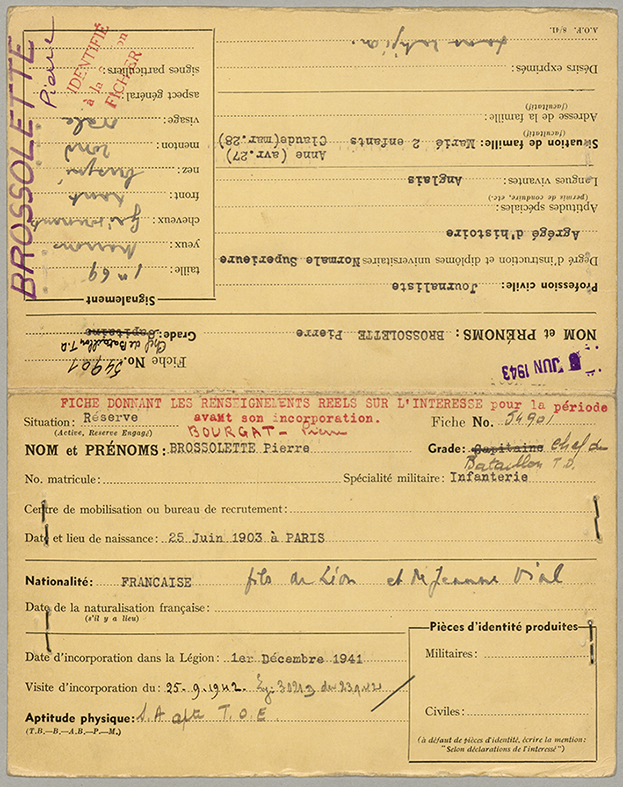 A.O.F. 8/41.
Désirs exprimés:
Adresse de la famille:
(facultatif)
Situation de famille: Marié 2 enfants Anne (avr.27)
(facultatif) Claude(mar.28)
Langues vivantes: Anglais
(permis de conduire, etc.)
Aptitudes spéciales:
Agrégé d'histoire
Degré d'instruction et diplômes universitaires Normale Superieure
Profession civile: Journaliste
NOM et PRÉNOMS: BROSSOLETTE Pierre
Fiche No. 54901
Grade: Capitaine
Chef de Bataillon T.D.
JUN 1943
Signalement
taille: 1m69
yeux
cheveux
front
nez:
menton rond
visage: ovale
aspect général
signes particuliers:
BROSSOLETTE
Pierre
IDENTIFIÉ
à la
FICHER
FICHE DONNANT LES RENSEIGNELENTS REELS SUR L'INTERESSE pour la période
avant son incorporation.
Situation: Réserve
(Active, Reserve Engagé)
BOURGAT - Pierre
Fiche No. 54901
NOM et PRÉNOMS: BROSSOLETTE Pierre
Grade: Capitaine Chef de
Bataillon T.D.
No. matricule:
Spécialité militaire: Infanterie
Centre de mobilisation ou bureau de recrutement:
Date et lieu de naissance: 25 Juin 1903 à PARIS
Nationalité: FRANCAISE fils de Léon et de Jeanne Vial
Date de la naturalisation française:
(s'il y a lieu)
Date d'incorporation dans la Légion: 1er Décembre 1941
Visite d'incorporation du: 25-9-1942
Aptitude physique: S.A apte T.O.E.
(T.B.—B.—A.B.—P.—M.)
Pièces d'identité produites
Militaires:
Civiles:
(à défaut de pièces d'identité, écrire la mention:
"Selon déclarations de l'interessé")